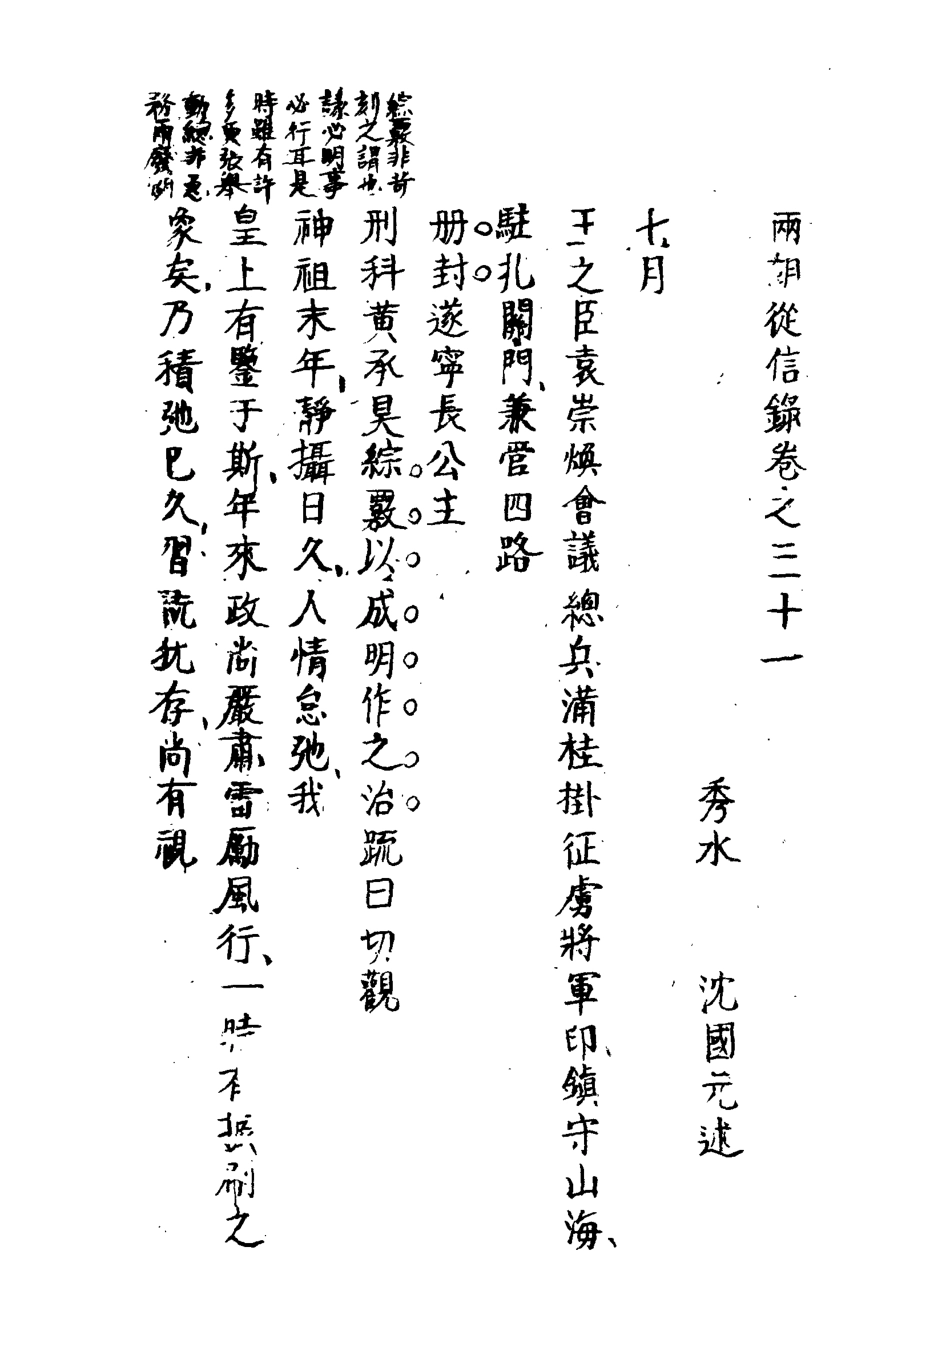 兩朝從信錄卷之三十一
秀水 沈國元述
七月
王之臣袁崇煥會議總兵滿桂掛征虜將軍印、鎮守山海、
駐扎關門、兼管四路
册封遂寧長公主
刑科黃承昊綜覈以成明作之治疏曰切觀
神祖末年、靜攝日久、人情怠弛、我
皇上有鑒于斯、年來政尚嚴肅雷厲風行、一時有振刷之
象矣、乃積弛已久、習玩犹存、尚有視
綜覈非苛
刻之謂也
謀必明事
必行耳是
時雖有許
多更張舉
動總非
務